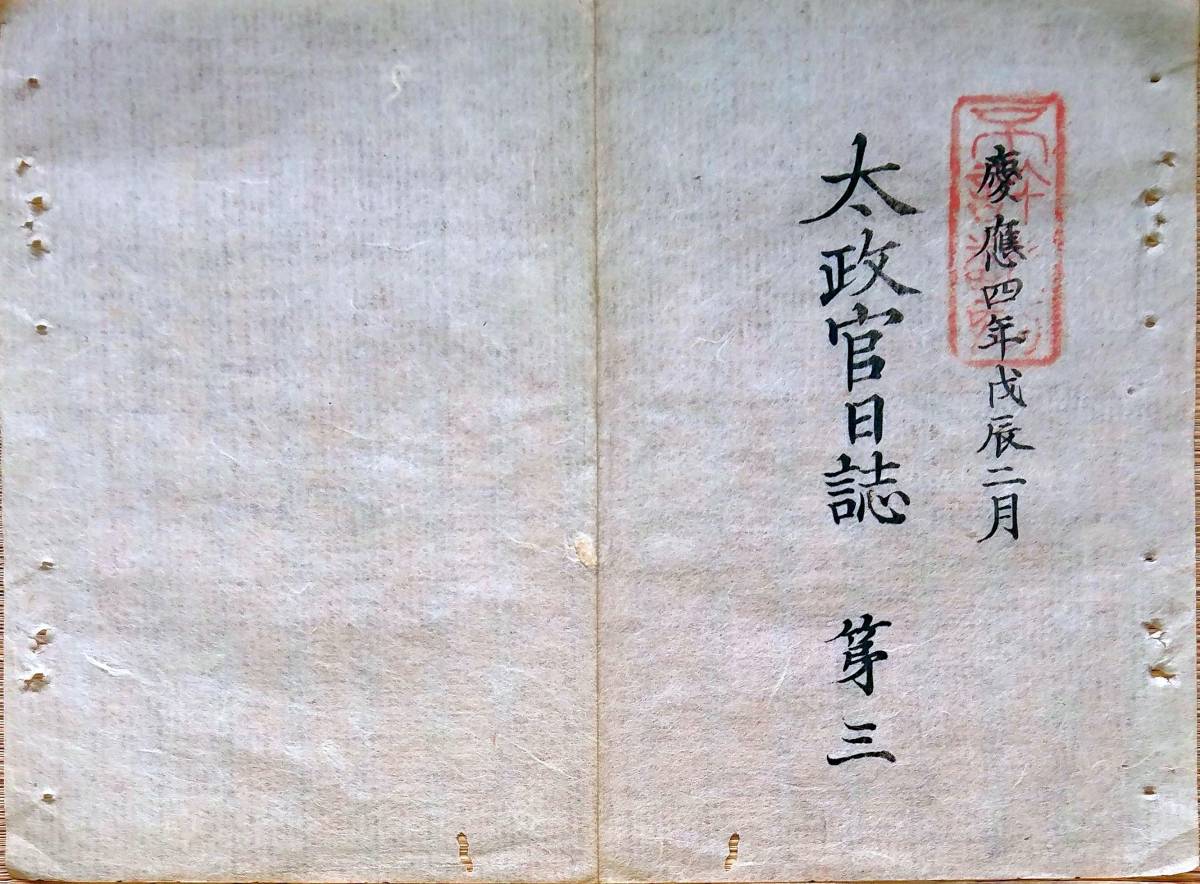 慶應四年戊辰二月
太政官日誌 第三